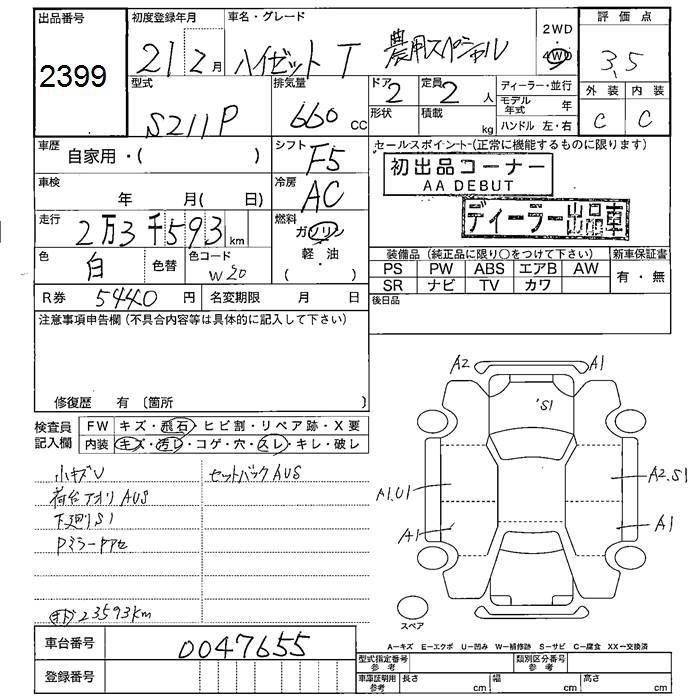 出品番号
2399
初度登録年月
21 2月
車名・グレード
ハイゼット T 農用スペシャル
2WD
4WD
評価点
3.5
外装
内装
C
C
型式
S211P
排気量
660 cc
ドア
2
形状
定員
2 人
積載
kg
ディーラー・並行
モデル年式
年
ハンドル 左・右
車歴
自家用・( )
シフト
F5
セールスポイント-(正常に機能するものに限ります)
初出品コーナー
AA DEBUT
ディーラー出品車
車検
年 月( 日)
冷房
AC
走行
2万3千593km
燃料
ガソリン
軽・油
( )
色
白
色替
色コード
W20
装備品 (純正品に限り○をつけて下さい)
新車保証書
PS PW ABS エアB AW
SR ナビ TV カワ
有・無
R券 5440円
名変期限 月 日
後日品
注意事項申告欄 (不具合内容等は具体的に記入して下さい)
修復歴 有 〔箇所 〕
検査員
記入欄
FW キズ・飛石・ヒビ割・リペア跡・X要
内装 キズ・汚レ・コゲ・穴・スレ・キレ・破レ
小キズU
セットバックAUS
荷台アオリAUS
下廻りS1
Pミラーケアセ
23593km
A2
A1
S1
A1.U1
A2.S1
A1
A1
スペア
車台番号
0047655
登録番号
A−キズ E−エクボ U−凹み W−補修跡 S−サビ C−腐食 XX−交換済
型式指定番号
参考
類別区分番号
参考
車庫証明用
参考
長さ cm
幅 cm
高さ cm